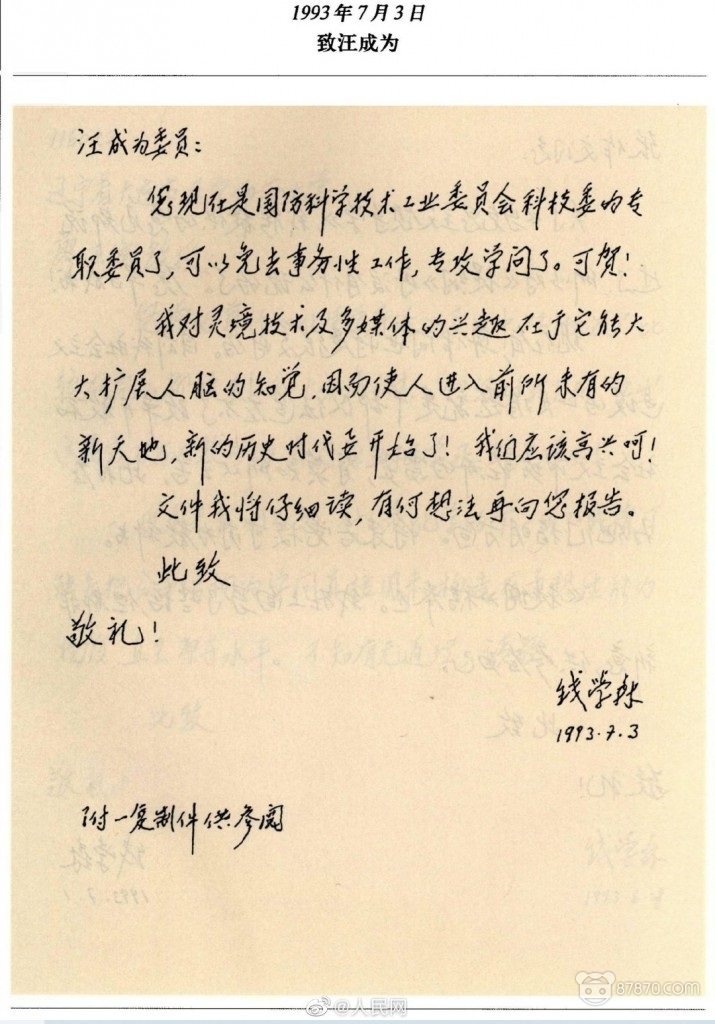 1993年7月3日
致汪成为
汪成为委员：
您现在是国防科学技术工业委员会科技委的专
职委员了，可以免去事务性工作，专攻学问了。可贺！
我对灵境技术及多媒体的兴趣在于它能大
大扩展人脑的知觉，因而使人进入前所未有的
新天地，新的历史时代要开始了！我们应该高兴呵！
文件我将仔细读，有何想法再向您报告。
此致
敬礼！
钱学森
1993.7.3
附一复制件供参阅
@人民网
87870.com